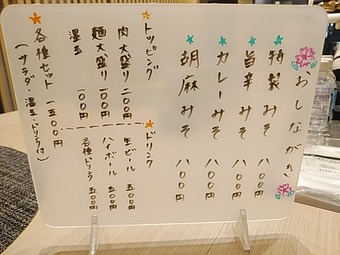 おしながき
特製みそ 八〇〇円
旨辛みそ 八〇〇円
カレーみそ 八〇〇円
胡麻みそ 八〇〇円
トッピング
肉大盛り 二〇〇円
麺大盛り 一〇〇円
温玉 一〇〇円
ドリンク
生ビール 五〇〇円
ハイボール 五〇〇円
各種ドリンク 五〇〇円
各種セット 一五〇〇円
(サラダ・温玉・ドリンク付)